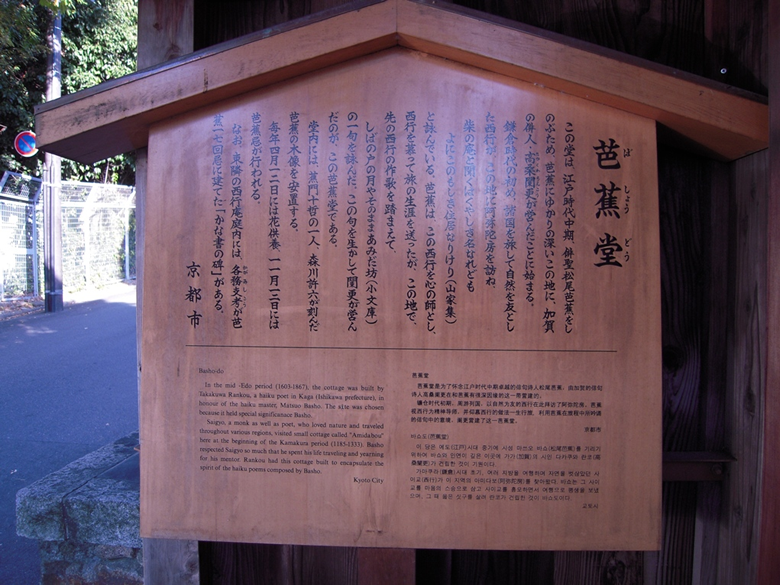 芭蕉堂
ばしょうどう
この堂は、江戸時代中期、俳聖松尾芭蕉をし
のぶため、芭蕉にゆかりの深いこの地に、加賀
の俳人、高桑闌更が営んだことに始まる。
鎌倉時代の初め、諸国を旅して自然を友とし
た西行が、この地に阿弥陀房を訪ね
柴の庵と聞くはくやしき名なれども
よにこのもしき住居なりけり(山家集)
と詠んでいる。芭蕉は、この西行を心の師とし、
西行を慕って旅の生涯を送ったが、この地で、
先の西行の作歌を踏まえて、
しばの戸の月やそのままあみだ坊(小文庫)
の一句を詠んだ。この句を生かして闌更が営ん
だのが、この芭蕉堂である。
堂内には、蕉門十哲の一人、森川許六が刻んだ
芭蕉の木像を安置する。
毎年四月一二日には花供養、一一月一二日には
芭蕉忌が行われる。
なお、東隣の西行庵庭内には、各務支考が芭
かがみしこう
蕉一七回忌に建てた「かな書の碑」がある。
京都市
Basho-do
In the mid -Edo period (1603-1867), the cottage was built by
Takakuwa Rankou, a haiku poet in Kaga (Ishikawa prefecture), in
honour of the haiku master, Matsuo Basho. The site was chosen
because it held special significance Basho.
Saigyo, a monk as well as poet, who loved nature and traveled
throughout various regions, visited small cottage called "Amidabou"
here at the beginning of the Kamakura period (1185-1333). Basho
respected Saigyo so much that he spent his life traveling and yearning
for his mentor. Rankou had this cottage built to encapsulate the
spirit of the haiku poems composed by Basho.
Kyoto City
芭蕉堂
芭蕉堂是为了怀念江户时代中期卓越的俳句诗人松尾芭蕉,由加贺的俳句
诗人高桑阑更在和芭蕉有很深因缘的这一带营建的。
京都市
바쇼도(芭蕉堂)
교토시